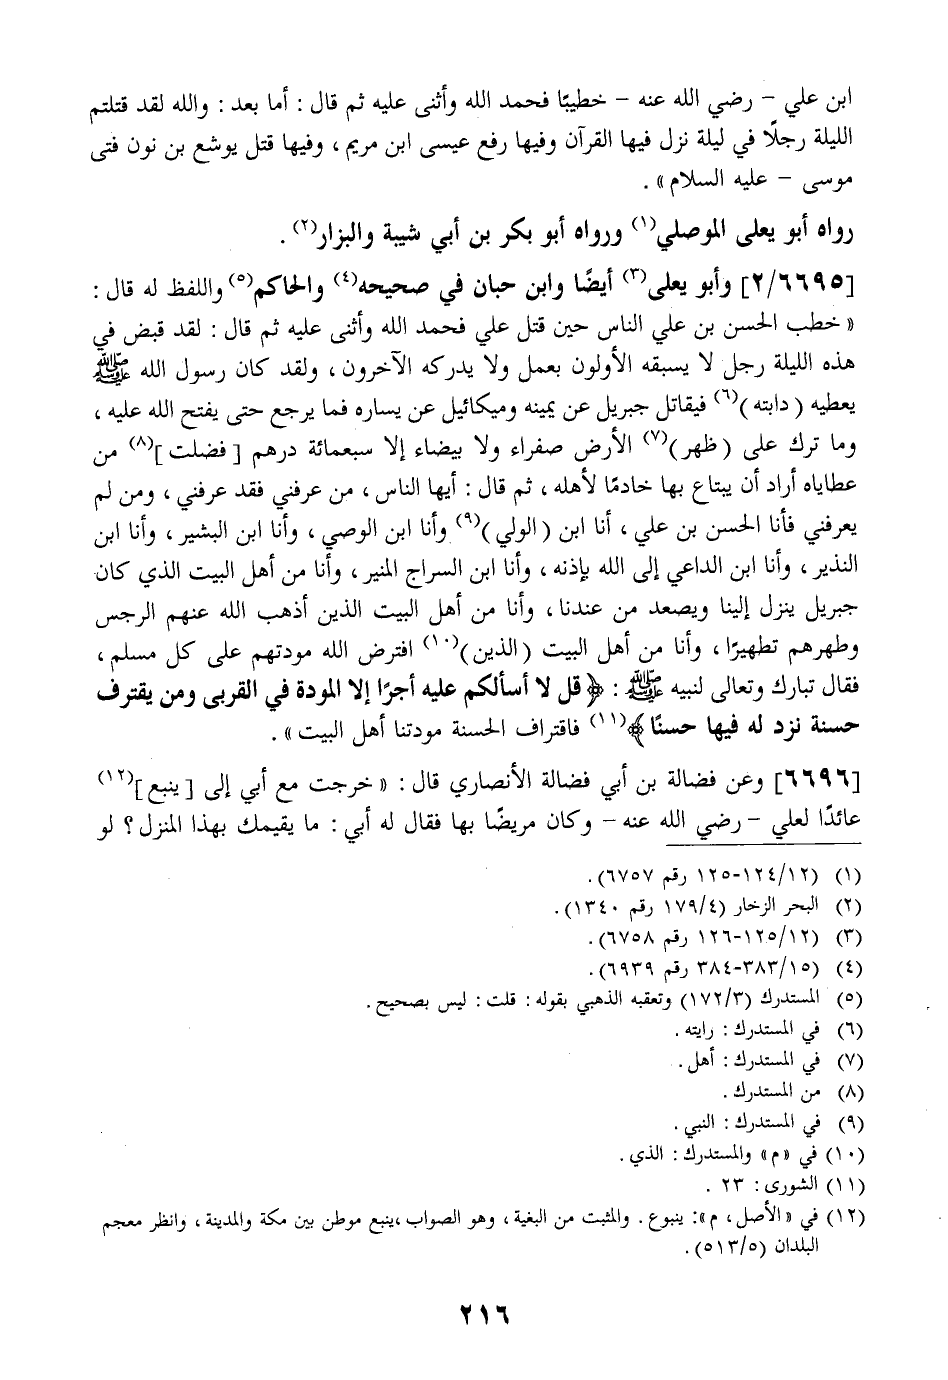 ابن علي - رضي الله عنه - خطيبًا فحمد الله وأثنى عليه ثم قال : أما بعد : والله لقد قتلتم
الليلة رجلًا في ليلة نزل فيها القرآن وفيها رفع عيسى ابن مريم ، وفيها قتل يوشع بن نون فتى
موسى - عليه السلام » .
رواه أبو يعلى الموصلي(١) ورواه أبو بكر بن أبي شيبة والبزار(٢) .
[٢/٦٦٩٥] وأبو يعلى(٣) أيضًا وابن حبان في صحيحه(٤) والحاكم(٥) واللفظ له قال :
« خطب الحسن بن علي الناس حين قتل علي فحمد الله وأثنى عليه ثم قال : لقد قبض في
هذه الليلة رجل لا يسبقه الأولون بعمل ولا يدركه الآخرون ، ولقد كان رسول الله ﷺ
يعطيه (دابته)(٦) فيقاتل جبريل عن يمينه وميكائيل عن يساره فما يرجع حتى يفتح الله عليه ،
وما ترك على (ظهر)(٧) الأرض صفراء ولا بيضاء إلا سبعمائة درهم [فضلت](٨) من
عطاياه أراد أن يبتاع بها خادمًا لأهله ، ثم قال : أيها الناس ، من عرفني فقد عرفني ، ومن لم
يعرفني فأنا الحسن بن علي ، أنا ابن (الولي)(٩) وأنا ابن الوصي ، وأنا ابن البشير ، وأنا ابن
النذير ، وأنا ابن الداعي إلى الله بإذنه ، وأنا ابن السراج المنير ، وأنا من أهل البيت الذي كان
جبريل ينزل إلينا ويصعد من عندنا ، وأنا من أهل البيت الذين أذهب الله عنهم الرجس
وطهرهم تطهيرًا ، وأنا من أهل البيت (الذين)(١٠) افترض الله مودتهم على كل مسلم ،
فقال تبارك وتعالى لنبيه ﷺ : ﴿قل لا أسألكم عليه أجرًا إلا المودة في القربى ومن يقترف
حسنة نزد له فيها حسنًا﴾(١١) فاقتراف الحسنة مودتنا أهل البيت» .
[٦٦٩٦] وعن فضالة بن أبي فضالة الأنصاري قال : « خرجت مع أبي إلى [ينبع](١٢)
عائدًا لعلي - رضي الله عنه - وكان مريضًا بها فقال له أبي : ما يقيمك بهذا المنزل ؟ لو
(١) (١٢٤/١٢-١٢٥ رقم ٦٧٥٧).
(٢) البحر الزخار (١٧٩/٤ رقم ١٣٤٠).
(٣) (١٢٥/١٢-١٢٦ رقم ٦٧٥٨).
(٤) (٣٨٣/١٥-٣٨٤ رقم ٦٩٣٩).
(٥) المستدرك (١٧٢/٣) وتعقبه الذهبي بقوله : قلت : ليس بصحيح.
(٦) في المستدرك : رايته.
(٧) في المستدرك : أهل.
(٨) من المستدرك.
(٩) في المستدرك : النبي.
(١٠) في «م» والمستدرك : الذي.
(١١) الشورى : ٢٣ .
(١٢) في «الأصل، م»: ينبوع. والمثبت من البغية، وهو الصواب، ينبع موطن بين مكة والمدينة، وانظر معجم
البلدان (٥١٣/٥).
٢١٦